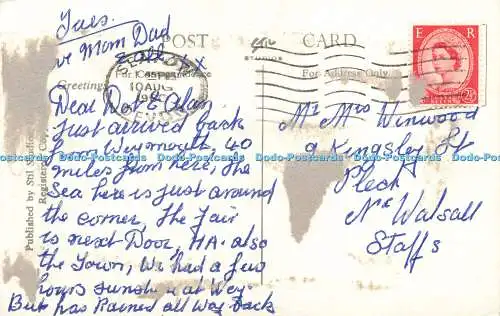 Tues.
ve Mom Dad
& all xx
POST
CARD
E R
STUDIOS
For Correspondence
For Address Only
10 AUG
DEVON
Greetings
Published by Stil Studio
Registered C
Dear Dot & Alan
Just arrived back
from Weymouth, 40
miles from here, The
Sea here is just around
the corner, The Fair
is next Door, HA. also
the Town, We had a few
hours sunshine at Wey
But has Rained all Way back
Mr Mrs Winwood
9 Kingsley St
Pleck
Nr Walsall
Staffs
Dodo-Postcards